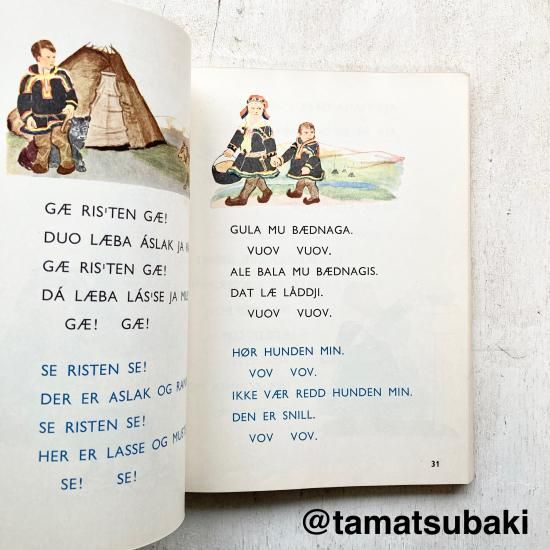 GÆ RIS'TEN GÆ!
DUO LÆBA ÁSLAK JA
GÆ RIS'TEN GÆ!
DÁ LÆBA LÁS'SE JA
GÆ! GÆ!
SE RISTEN SE!
DER ER ASLAK OG
SE RISTEN SE!
HER ER LASSE OG
SE! SE!
GULA MU BÆDNAGA.
VUOV VUOV.
ALE BALA MU BÆDNAGIS.
DAT LÆ LÅDDJI.
VUOV VUOV.
HØR HUNDEN MIN.
VOV VOV.
IKKE VÆR REDD HUNDEN MIN.
DEN ER SNILL.
VOV VOV.
31
@tamatsubaki